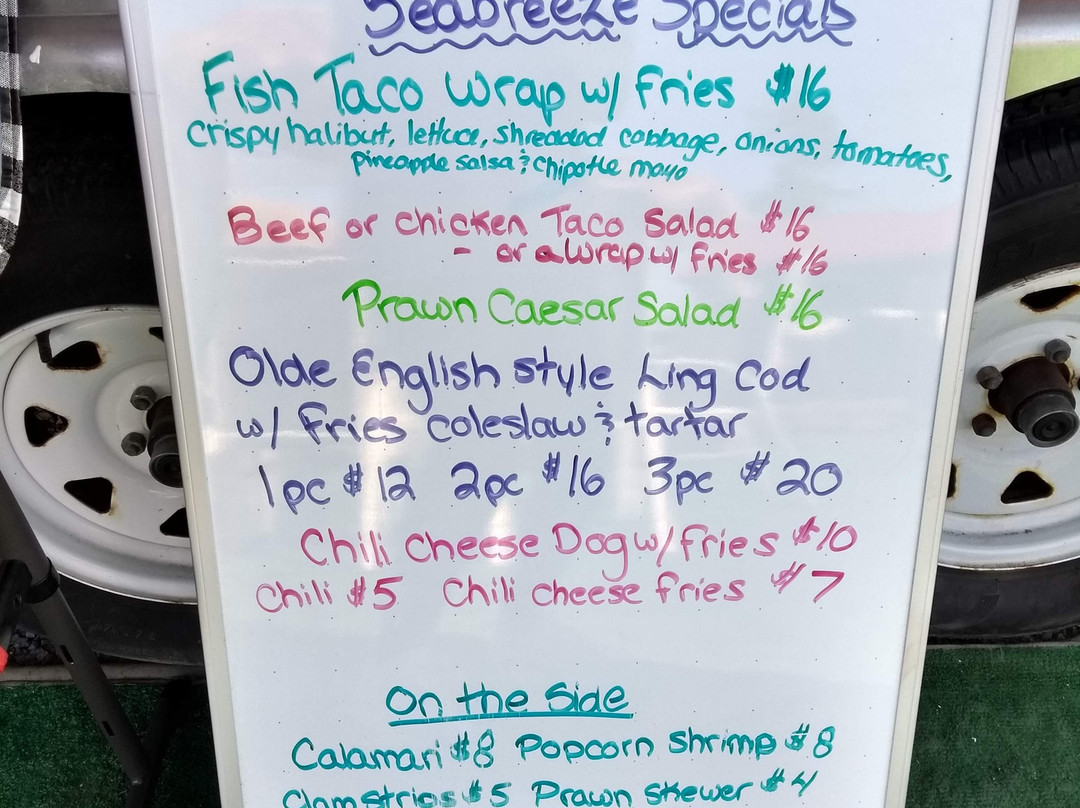 Seabreeze Specials
Fish Taco Wrap w/ fries $16
Crispy halibut, lettuce, shredded cabbage, onions, tomatoes,
pineapple salsa & Chipotle mayo
Beef or chicken Taco Salad $16
- or a wrap w/ fries $16
Prawn Caesar Salad $16
Olde English style Ling Cod
w/ Fries coleslaw & tartar
1pc $12 2pc $16 3pc $20
Chili cheese Dog w/ fries $10
Chili $5 Chili cheese fries $7
On the Side
Calamari $8 Popcorn shrimp $8
Clam strips $5 Prawn skewer $4